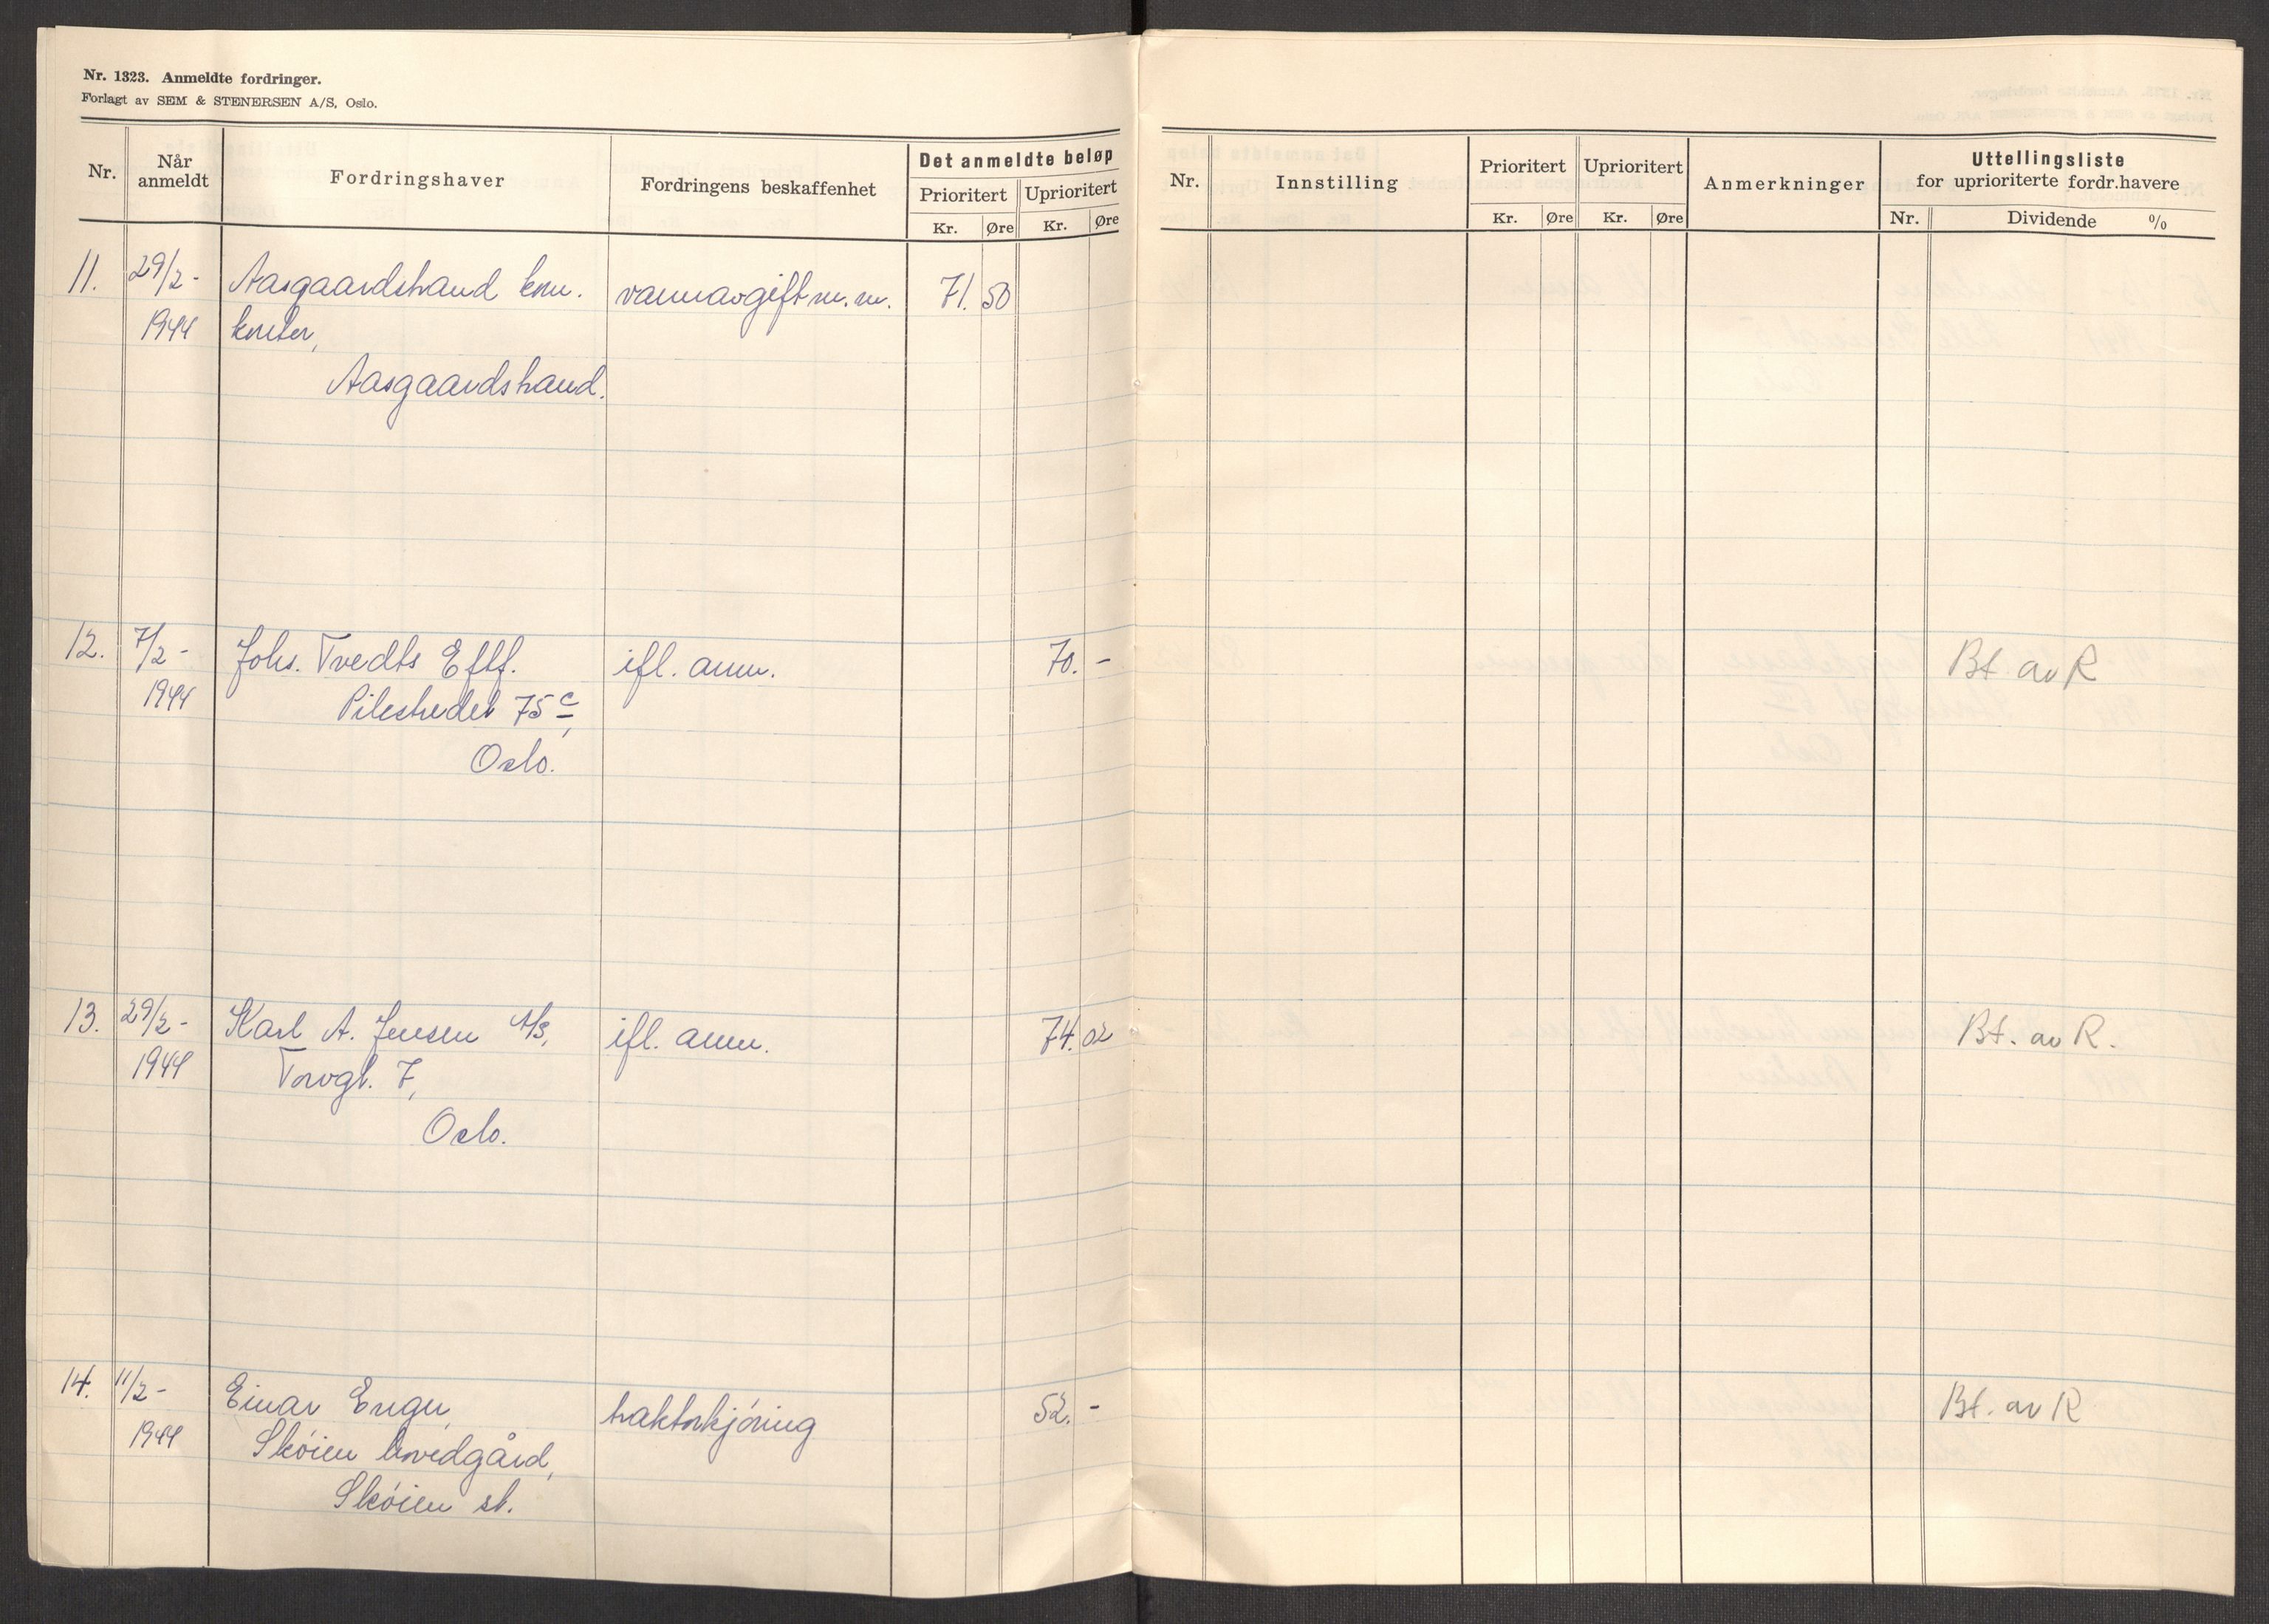 Nr. 1323. Anmeldte fordringer.
Forlagt av SEM & STENERSEN A/S, Oslo.
Nr. Når anmeldt Fordringshaver Fordringens beskaffenhet Det anmeldte beløp
Prioritert Uprioritert
Kr. Øre Kr. Øre
11. 29/2- Aasgaardstrand kom. vannavgift m.m. 71. 50
1944 kontor,
Aasgaardstrand.
12. 7/2- Johs. Tvedts Eftf. ifl. anm. 70. -
1944 Pilestredet 75 c,
Oslo.
13. 29/2- Karl A. Jensen A/S, ifl. anm. 74. 02
1944 Torvgt. 7,
Oslo.
14. 11/2- Einar Enger, traktorkjöring 52. -
1944 Sköien hovedgård,
Sköien st.
Nr. Innstilling Prioritert Uprioritert Anmerkninger Uttellingsliste
for uprioriterte fordr.havere
Kr. Øre Kr. Øre Nr. Dividende %
Bt. av R
Bt. av R.
Bt. av R